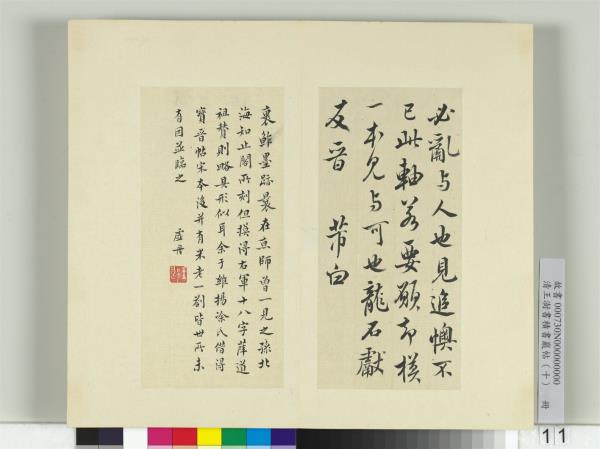 必亂与人也見追懊不
已此軸若要願模
一本見与可也龍石獻
友晉 芾白
裹鮓墨跡曩在京師曾一見之孫北
海知止閣所刻但摸得右軍十八字薛道
祖贊則略具形似耳余于維揚涂氏借得
寶晉帖宋本後并有米老一劄皆世所未
有因並臨之 虛舟
故書000730N000000000
清王澍書積書巖帖（十） 冊
11